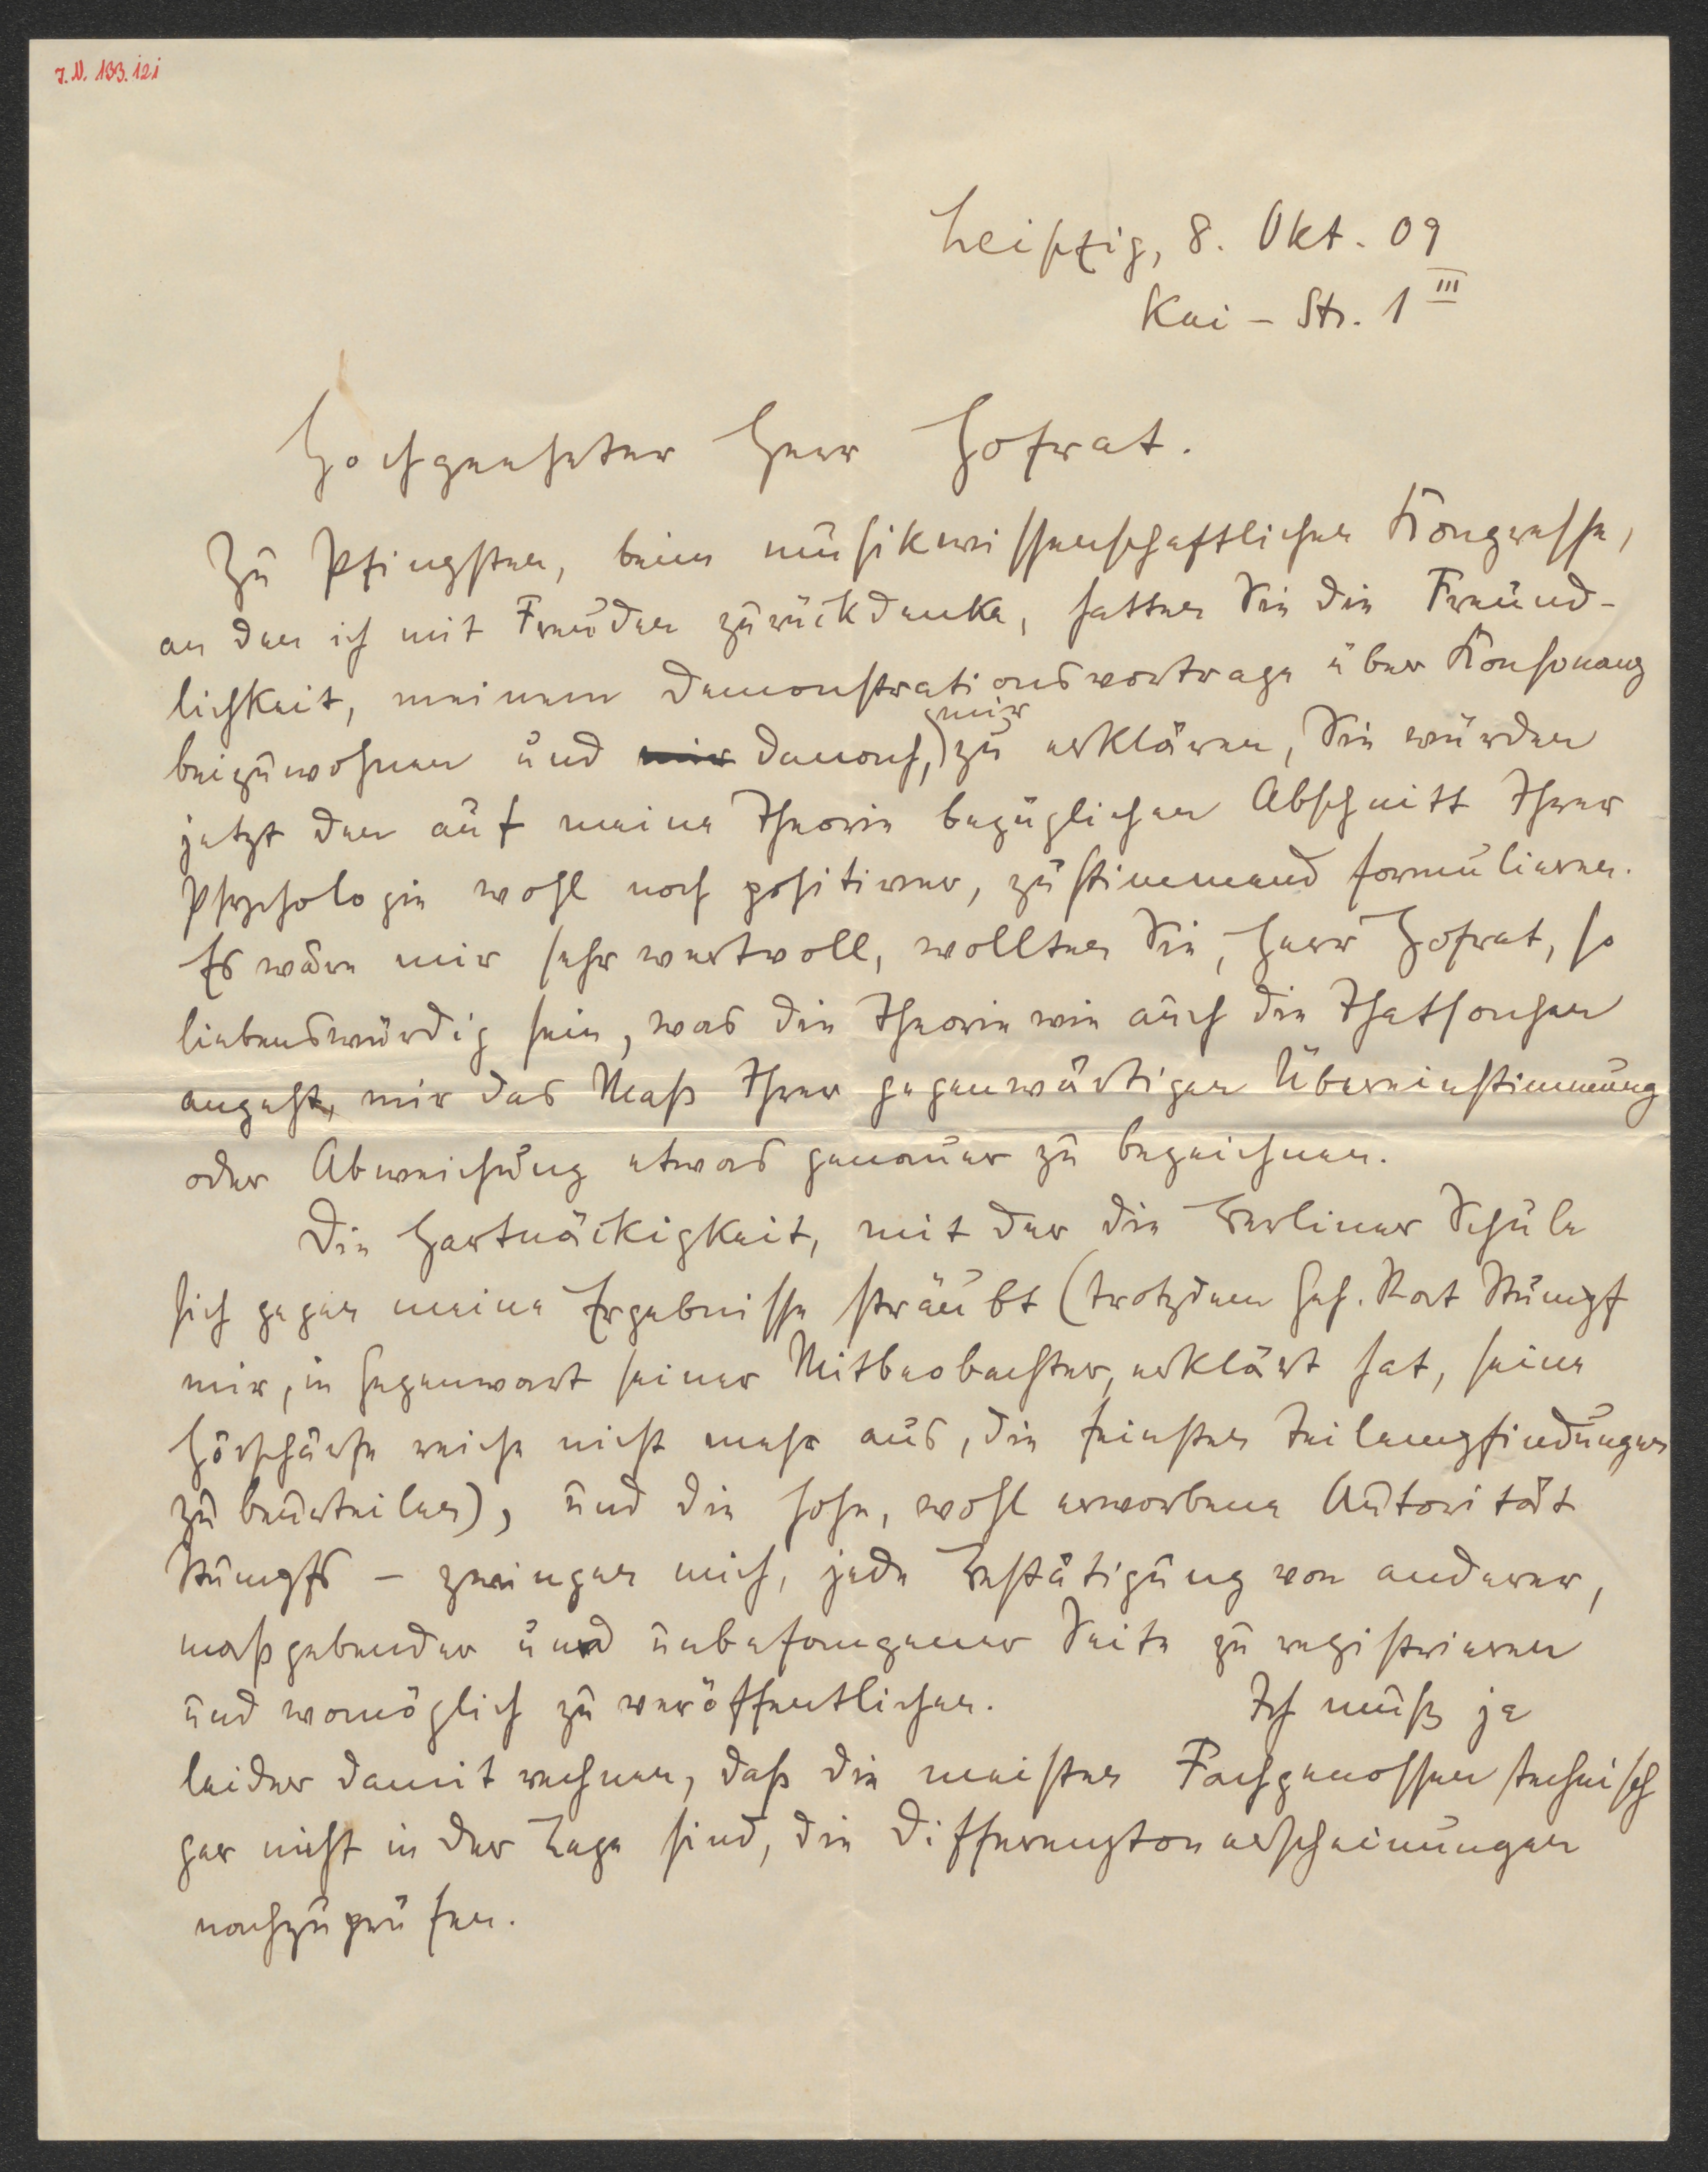 J.N. 133.121
Leipzig, 8. Okt. 09
Kai-Str. 1 III
Hochgeehrter Herr Hofrat.
Zu Pfingsten, beim musikwissenschaftlichen Kongresse,
an den ich mit Freuden zurückdenke, hatten Sie die Freund-
lichkeit, meinem Demonstrationsvortrage über Konsonanz
beizuwohnen und mir danach, mir zu erklären, Sie würden
jetzt den auf meine Theorie bezüglichen Abschnitt Ihrer
Psychologie wohl noch positiver, zustimmend formulieren.
Es wäre mir sehr wertvoll, wollten Sie, Herr Hofrat, so
liebenswürdig sein, was die Theorie wie auch die Thatsachen
angeht, mir das Maß Ihrer gegenwärtigen Übereinstimmung
oder Abweichung etwas genauer zu bezeichnen.
Die Hartnäckigkeit, mit der die Berliner Schule
sich gegen meine Ergebnisse sträubt (trotzdem Geh. Rat Stumpf
mir, in Gegenwart seiner Mitbeobachter, erklärt hat, seine
Hörschärfe reiche nicht mehr aus, die feinsten Teilempfindungen
zu beurteilen), und die hohe, wohl erworbene Autorität
Stumpfs – zwingen mich, jede Bestätigung von anderer,
maßgebender und unbefangener Seite zu registrieren
und womöglich zu veröffentlichen. Ich muß ja
leider damit rechnen, daß die meisten Fachgenossen technisch
gar nicht in der Lage sind, die Differenztonerscheinungen
nachzuprüfen.